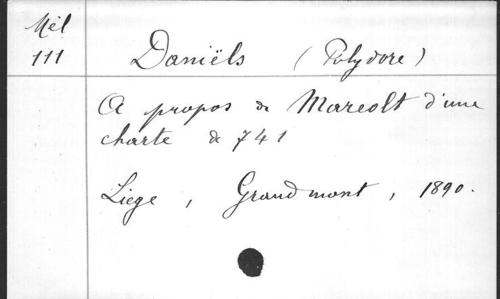 Mél
111
Daniëls (Polydore)
A propos de Mareolt d'une
charte de 741
Liege, Grandmont, 1890.